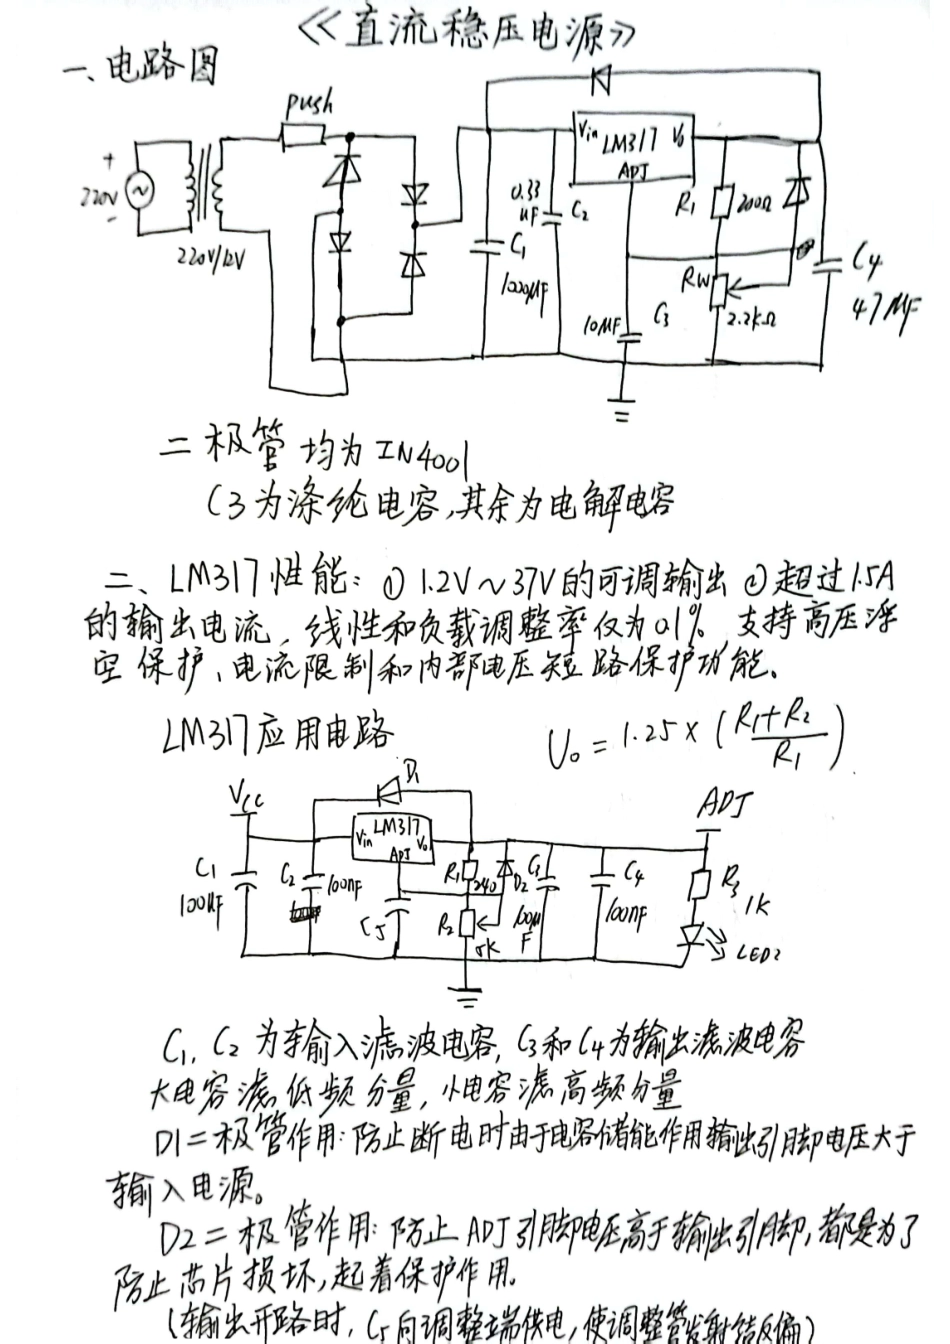 《直流稳压电源》
一、电路图
push
+
220V
-
220V/12V
Vin LM317 Vo
ADJ
0.33
uF C2
C1
1000μF
R1 200Ω
RW
2.2kΩ
10MF C3
C4
47MF
二极管均为IN4001
C3为涤纶电容,其余为电解电容
二、LM317性能:①1.2V~37V的可调输出②超过1.5A
的输出电流,线性和负载调整率仅为0.1%,支持高压浮
空保护、电流限制和内部电压短路保护功能。
LM317应用电路
Uo=1.25×(R1+R2/R1)
D1
Vcc
ADJ
LM317
Vin Vo
ADJ
C1
100μF
C2 100nF
CJ
R1 240
R2 5K
D2
C3 100μF
C4
100nF
R3
1K
LED2
C1,C2为输入滤波电容,C3和C4为输出滤波电容
大电容滤低频分量,小电容滤高频分量
D1二极管作用:防止断电时由于电容储能作用输出引脚电压大于
输入电源。
D2二极管作用:防止ADJ引脚电压高于输出引脚,都是为了
防止芯片损坏,起着保护作用。
(输出开路时,CJ向调整端供电,使调整管发射结反偏)